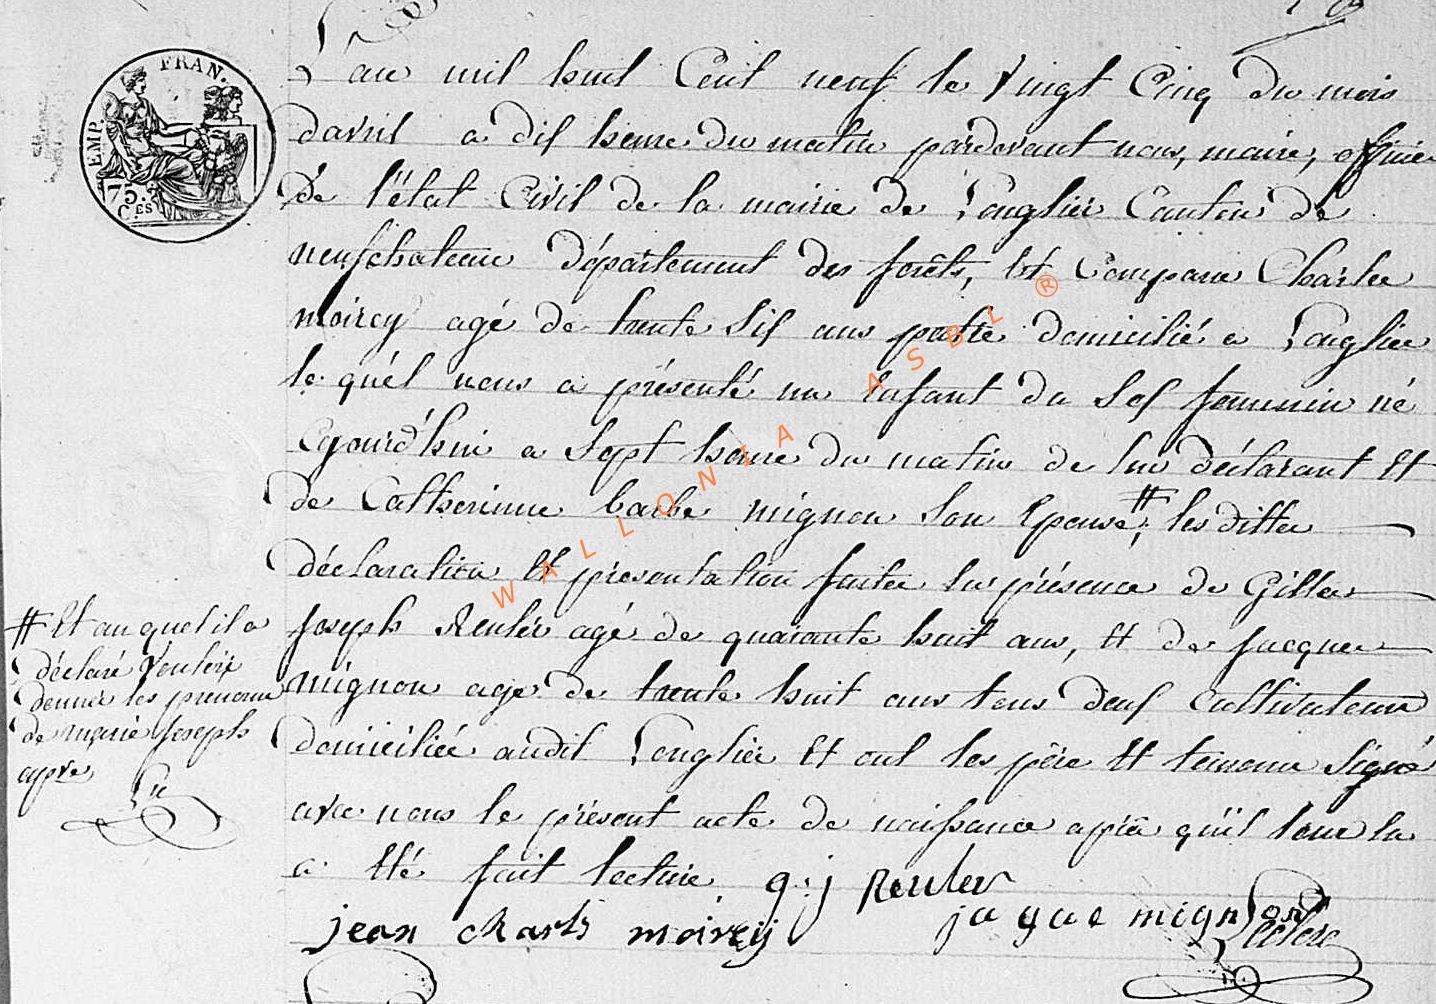 EMP. FRAN.
75.
CES
L'an mil huit Cent neuf le Vingt Cinq du mois
davril a dix heure du matin pardevant nous, maire, officier
de l'ëtat Civil de la mairie de Longlier Canton de
neufchateau département des forêts, Est Comparu Charles
moircy agé de trente Six ans patre domicilié a Longlier
le quél nous a présenté un Enfant du Sex feminin né
cejourd'hui a Sept heure du matin de lui déclarant Et
de Catherinne barbe mignon Son Epouse, # les dittes
déclaration Et présentation faites En présence de Gilles
Joseph Reuler agé de quarante huit ans, Et de Jacques
mignon age de trente huit ans tous deux Cultivateurs
domiciliés audit Longlier Et ont les père Et temoins Signé
avec nous le présent acte de naissance après qu'il leur En
a Eté fait lecture
# Et au quel il a
déclaré Vouloir
donner les prenoms
de marie Joseph
aprvé
g: j Reuler
jean charls moircy
jaque mignon
Leclerc
WALLONIA ASBL ®